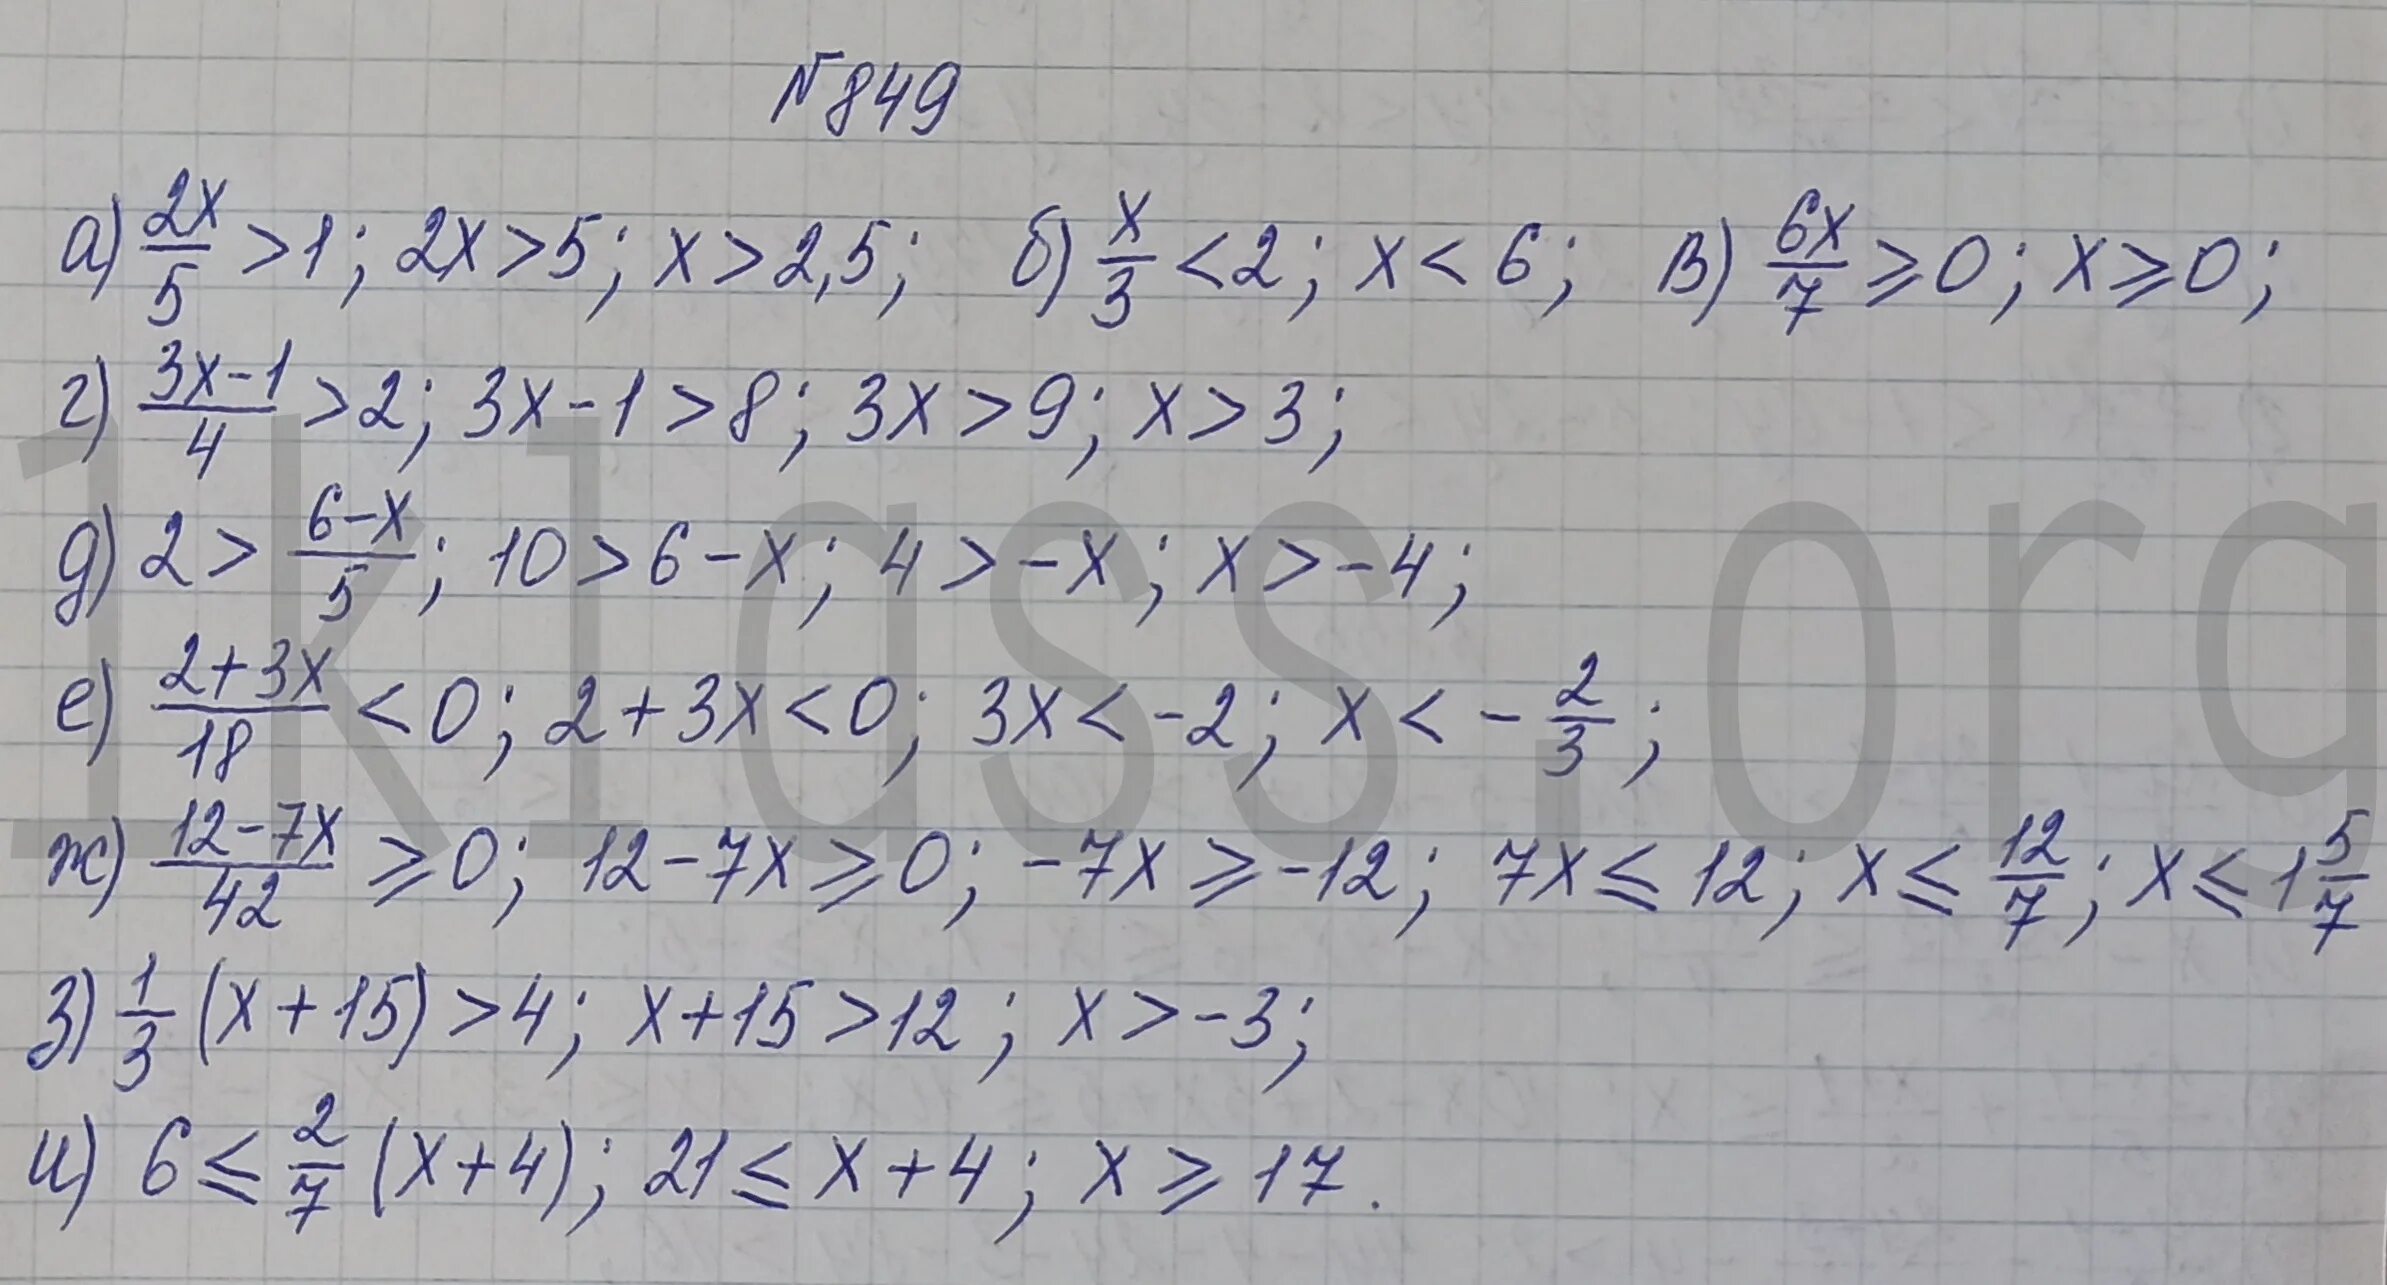 №849
а) 2x/5 > 1; 2x > 5; x > 2,5; б) x/3 < 2; x < 6; в) 6x/7 ⩾ 0; x ⩾ 0;
г) 3x-1/4 > 2; 3x-1 > 8; 3x > 9; x > 3;
д) 2 > 6-x/5; 10 > 6-x; 4 > -x; x > -4;
е) 2+3x/18 < 0; 2+3x < 0; 3x < -2; x < -2/3;
ж) 12-7x/42 ⩾ 0; 12-7x ⩾ 0; -7x ⩾ -12; 7x ⩽ 12; x ⩽ 12/7; x ⩽ 1 5/7
з) 1/3 (x+15) > 4; x+15 > 12; x > -3;
и) 6 ⩽ 2/7 (x+4); 21 ⩽ x+4; x ⩾ 17.
1klass.org